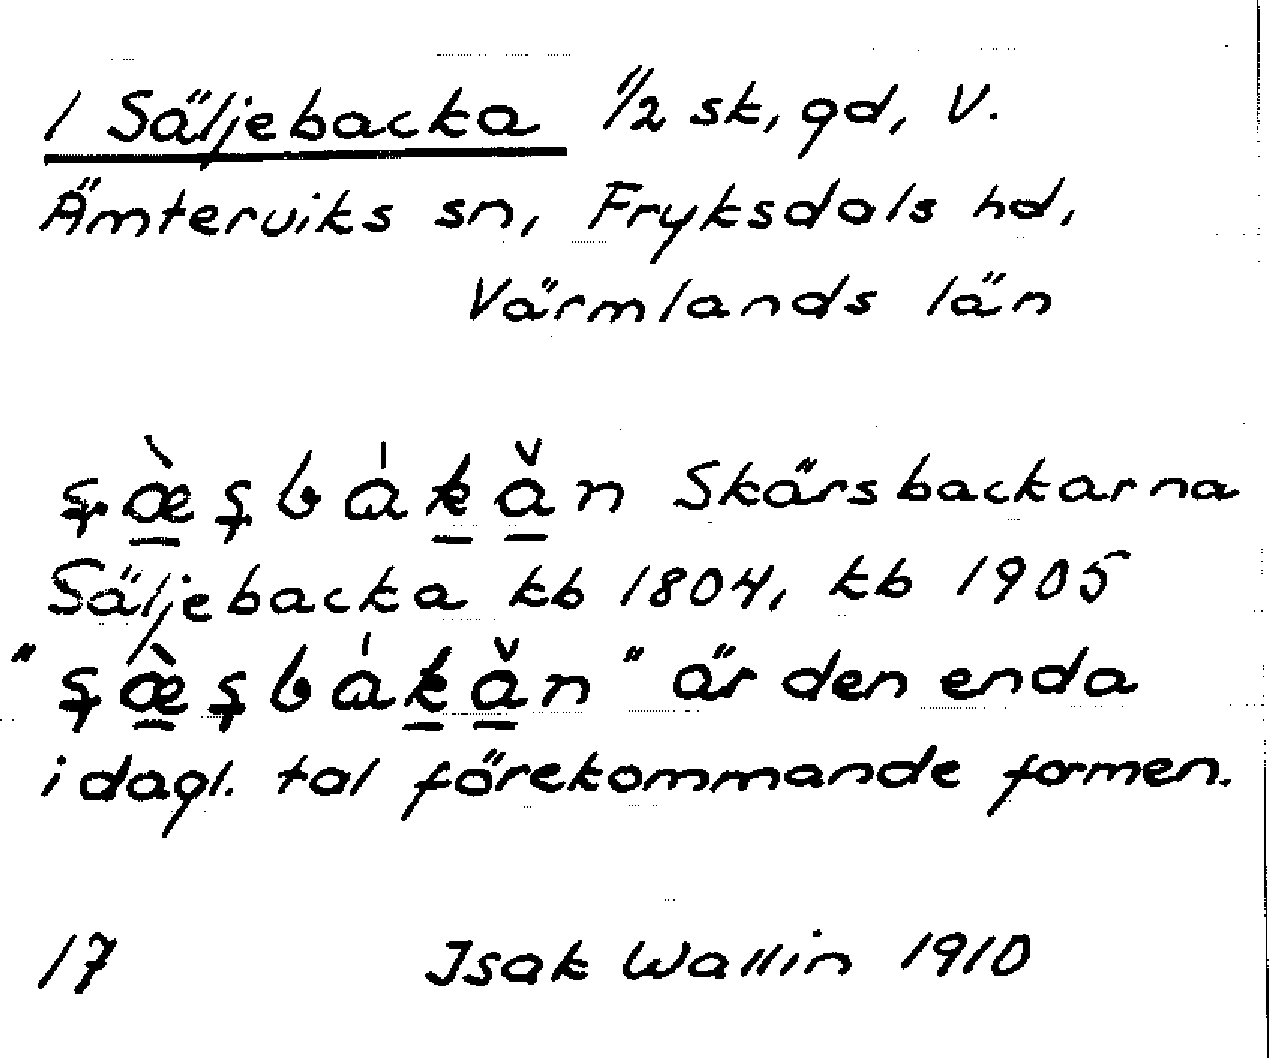 1 Säljebacka 1/2 sk, gd, V.
Ämterviks sn, Fryksdals hd,
Värmlands län
ʂæ̀ʂbákǎn Skärsbackarna
Säljebacka kb 1804, kb 1905
"ʂæ̀ʂbákǎn" är den enda
i dagl. tal förekommande formen.
17 Isak Wallin 1910